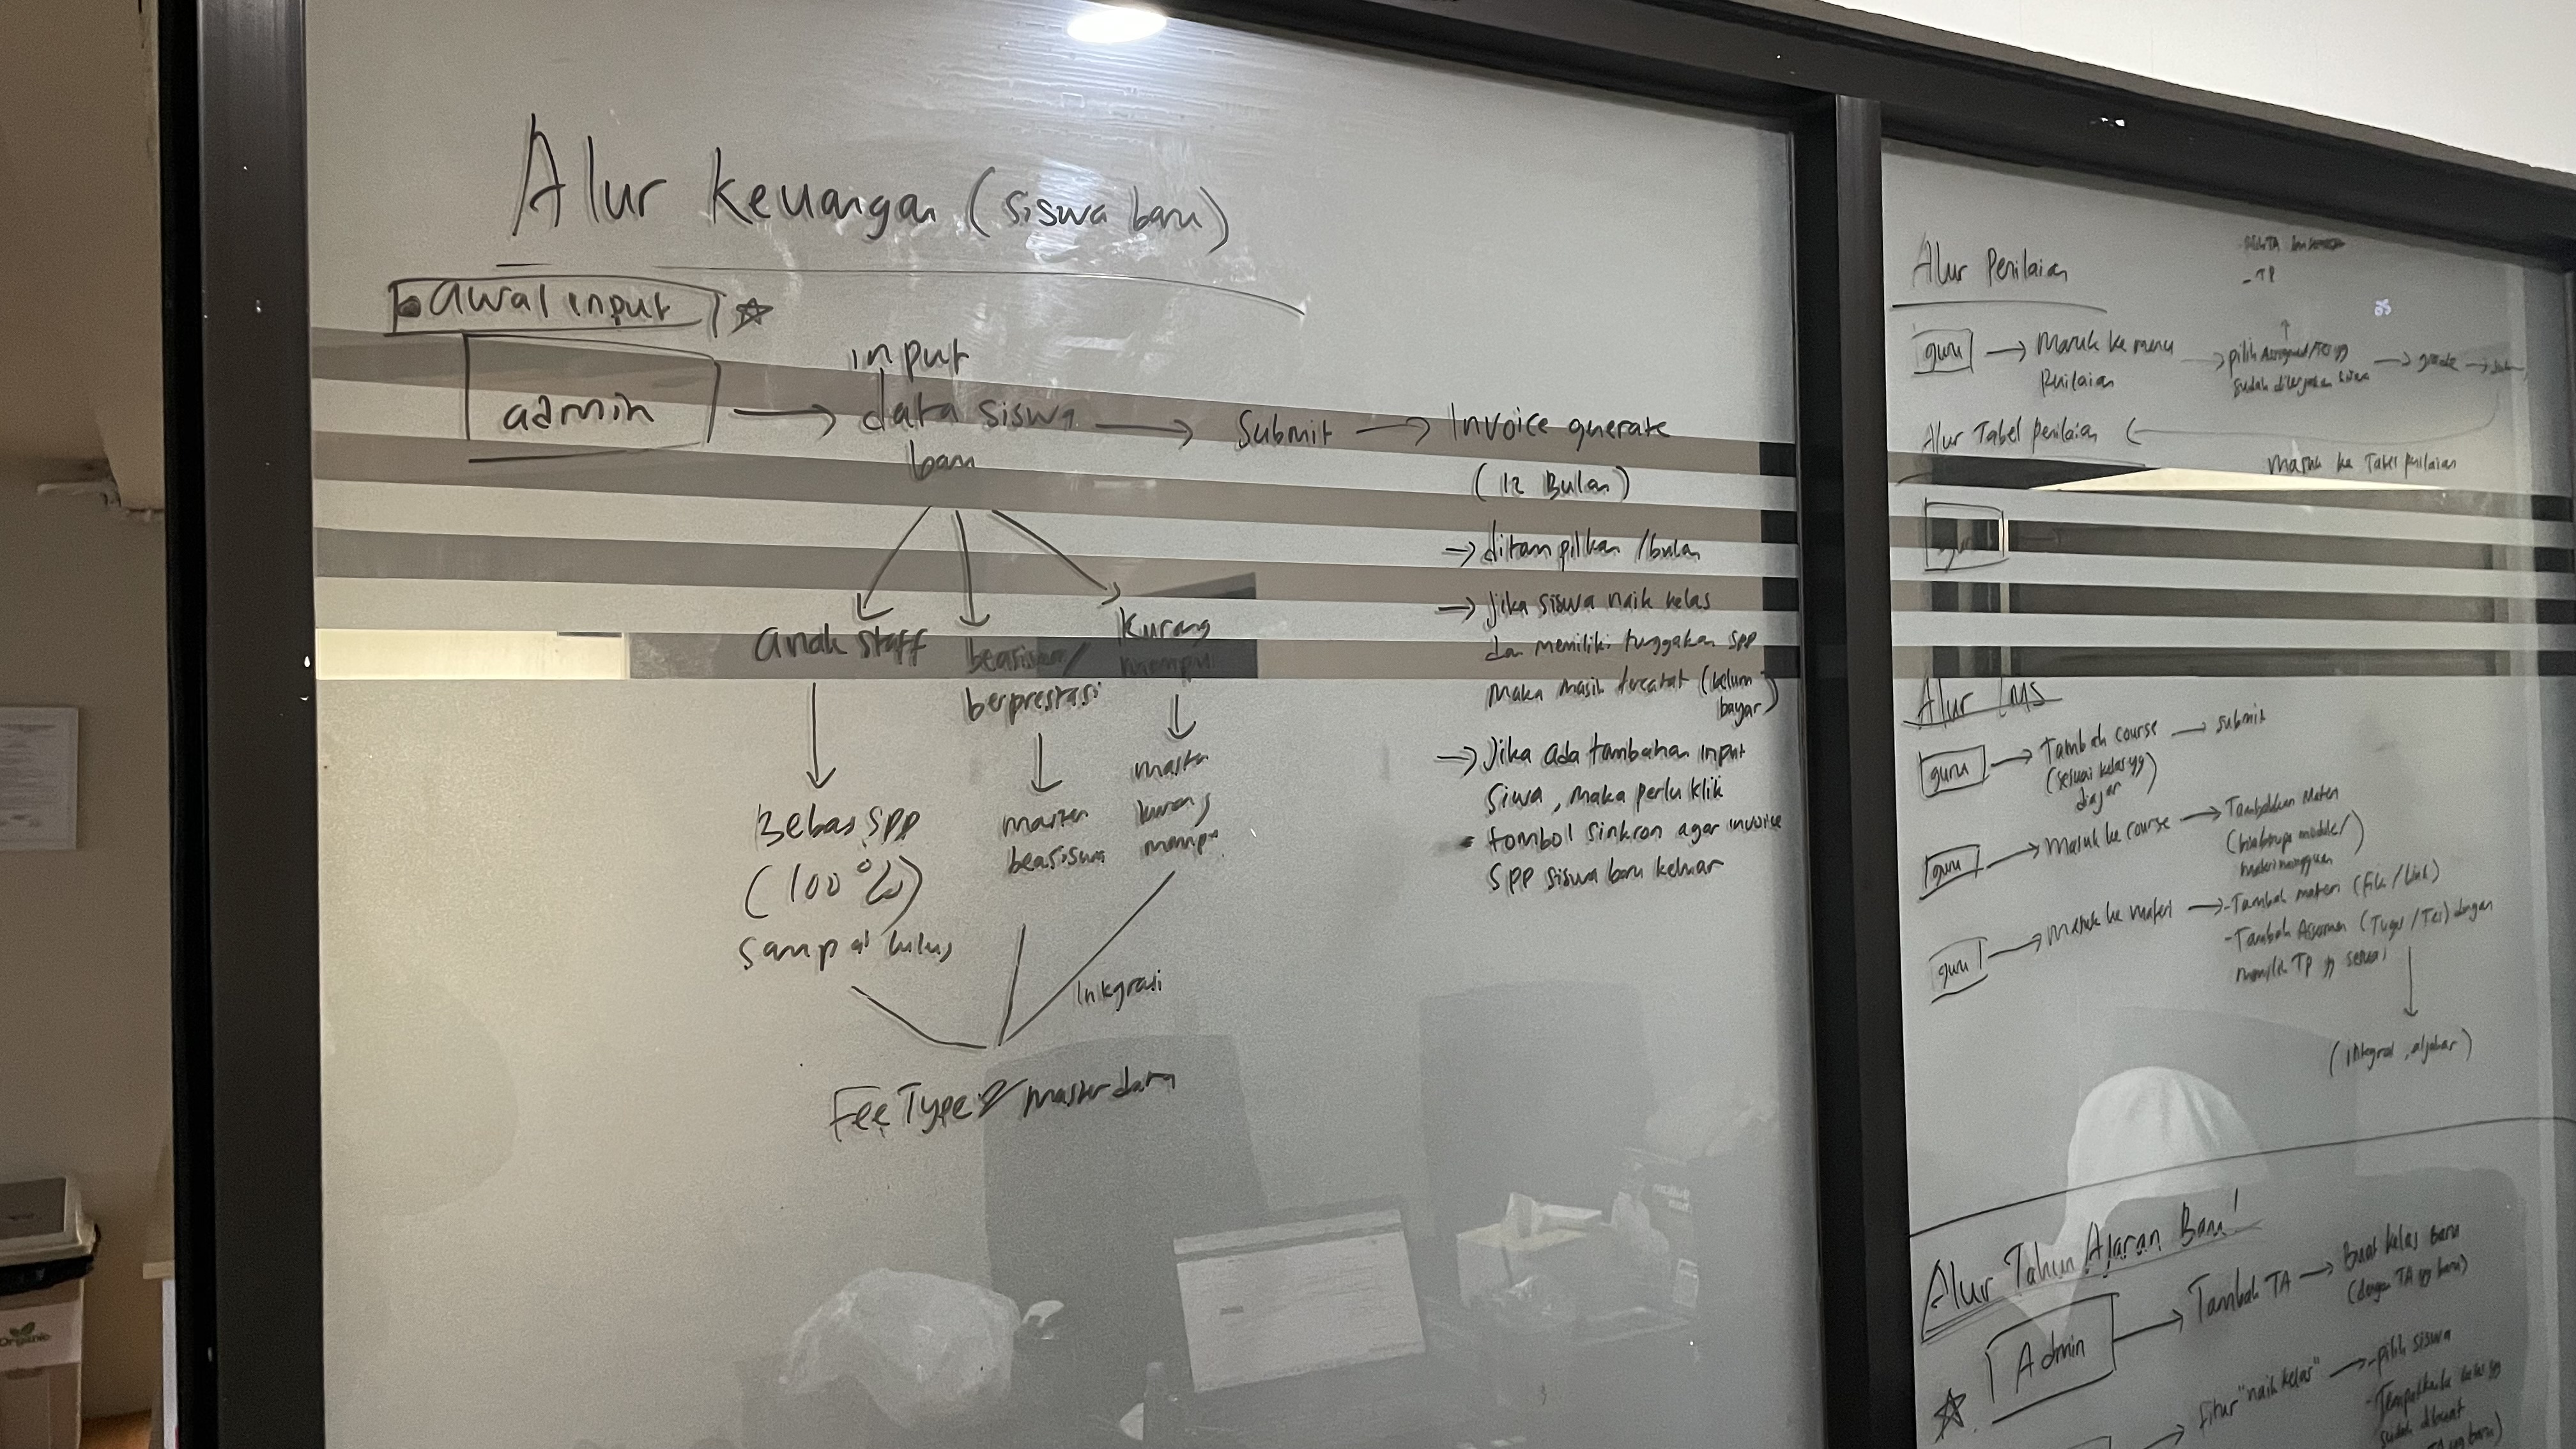 Alur Keuangan (siswa baru)
awal input
admin
input
data siswa
baru
Submit
Invoice generate
(12 Bulan)
ditampilkan /bulan
Jika siswa naik kelas
dan memiliki tunggakan SPP
maka masih tercatat (belum
bayar)
Jika ada tambahan input
siswa, maka perlu klik
tombol sinkron agar invoice
SPP siswa baru keluar
anak staff
beasiswa/
berprestasi
Kurang
mampu
Bebas SPP
(100%)
sampai lulus
master
beasiswa
master
kurang
mampu
Integrasi
Fee Type
master data
Alur Penilaian
- TP
guru
Masuk ke menu
Penilaian
pilih
sudah dikerjakan siswa
Alur Tabel penilaian
Masuk ke Tabel penilaian
Alur LMS
guru
Tambah course
(sesuai kelas yg
diajar)
submit
guru
Masuk ke course
Tambahkan Materi
guru
Masuk ke materi
- Tambah materi (File / Link)
- Tambah Assesmen (Tugas / Tes) dengan
memilih TP yg sesuai
(integral, aljabar)
Alur Tahun Ajaran Baru!
Admin
Tambah TA
Buat kelas Baru
(dengan TA yg baru)
fitur "naik kelas"
- pilih siswa
- Tempatkan ke kelas yg
sudah dibuat